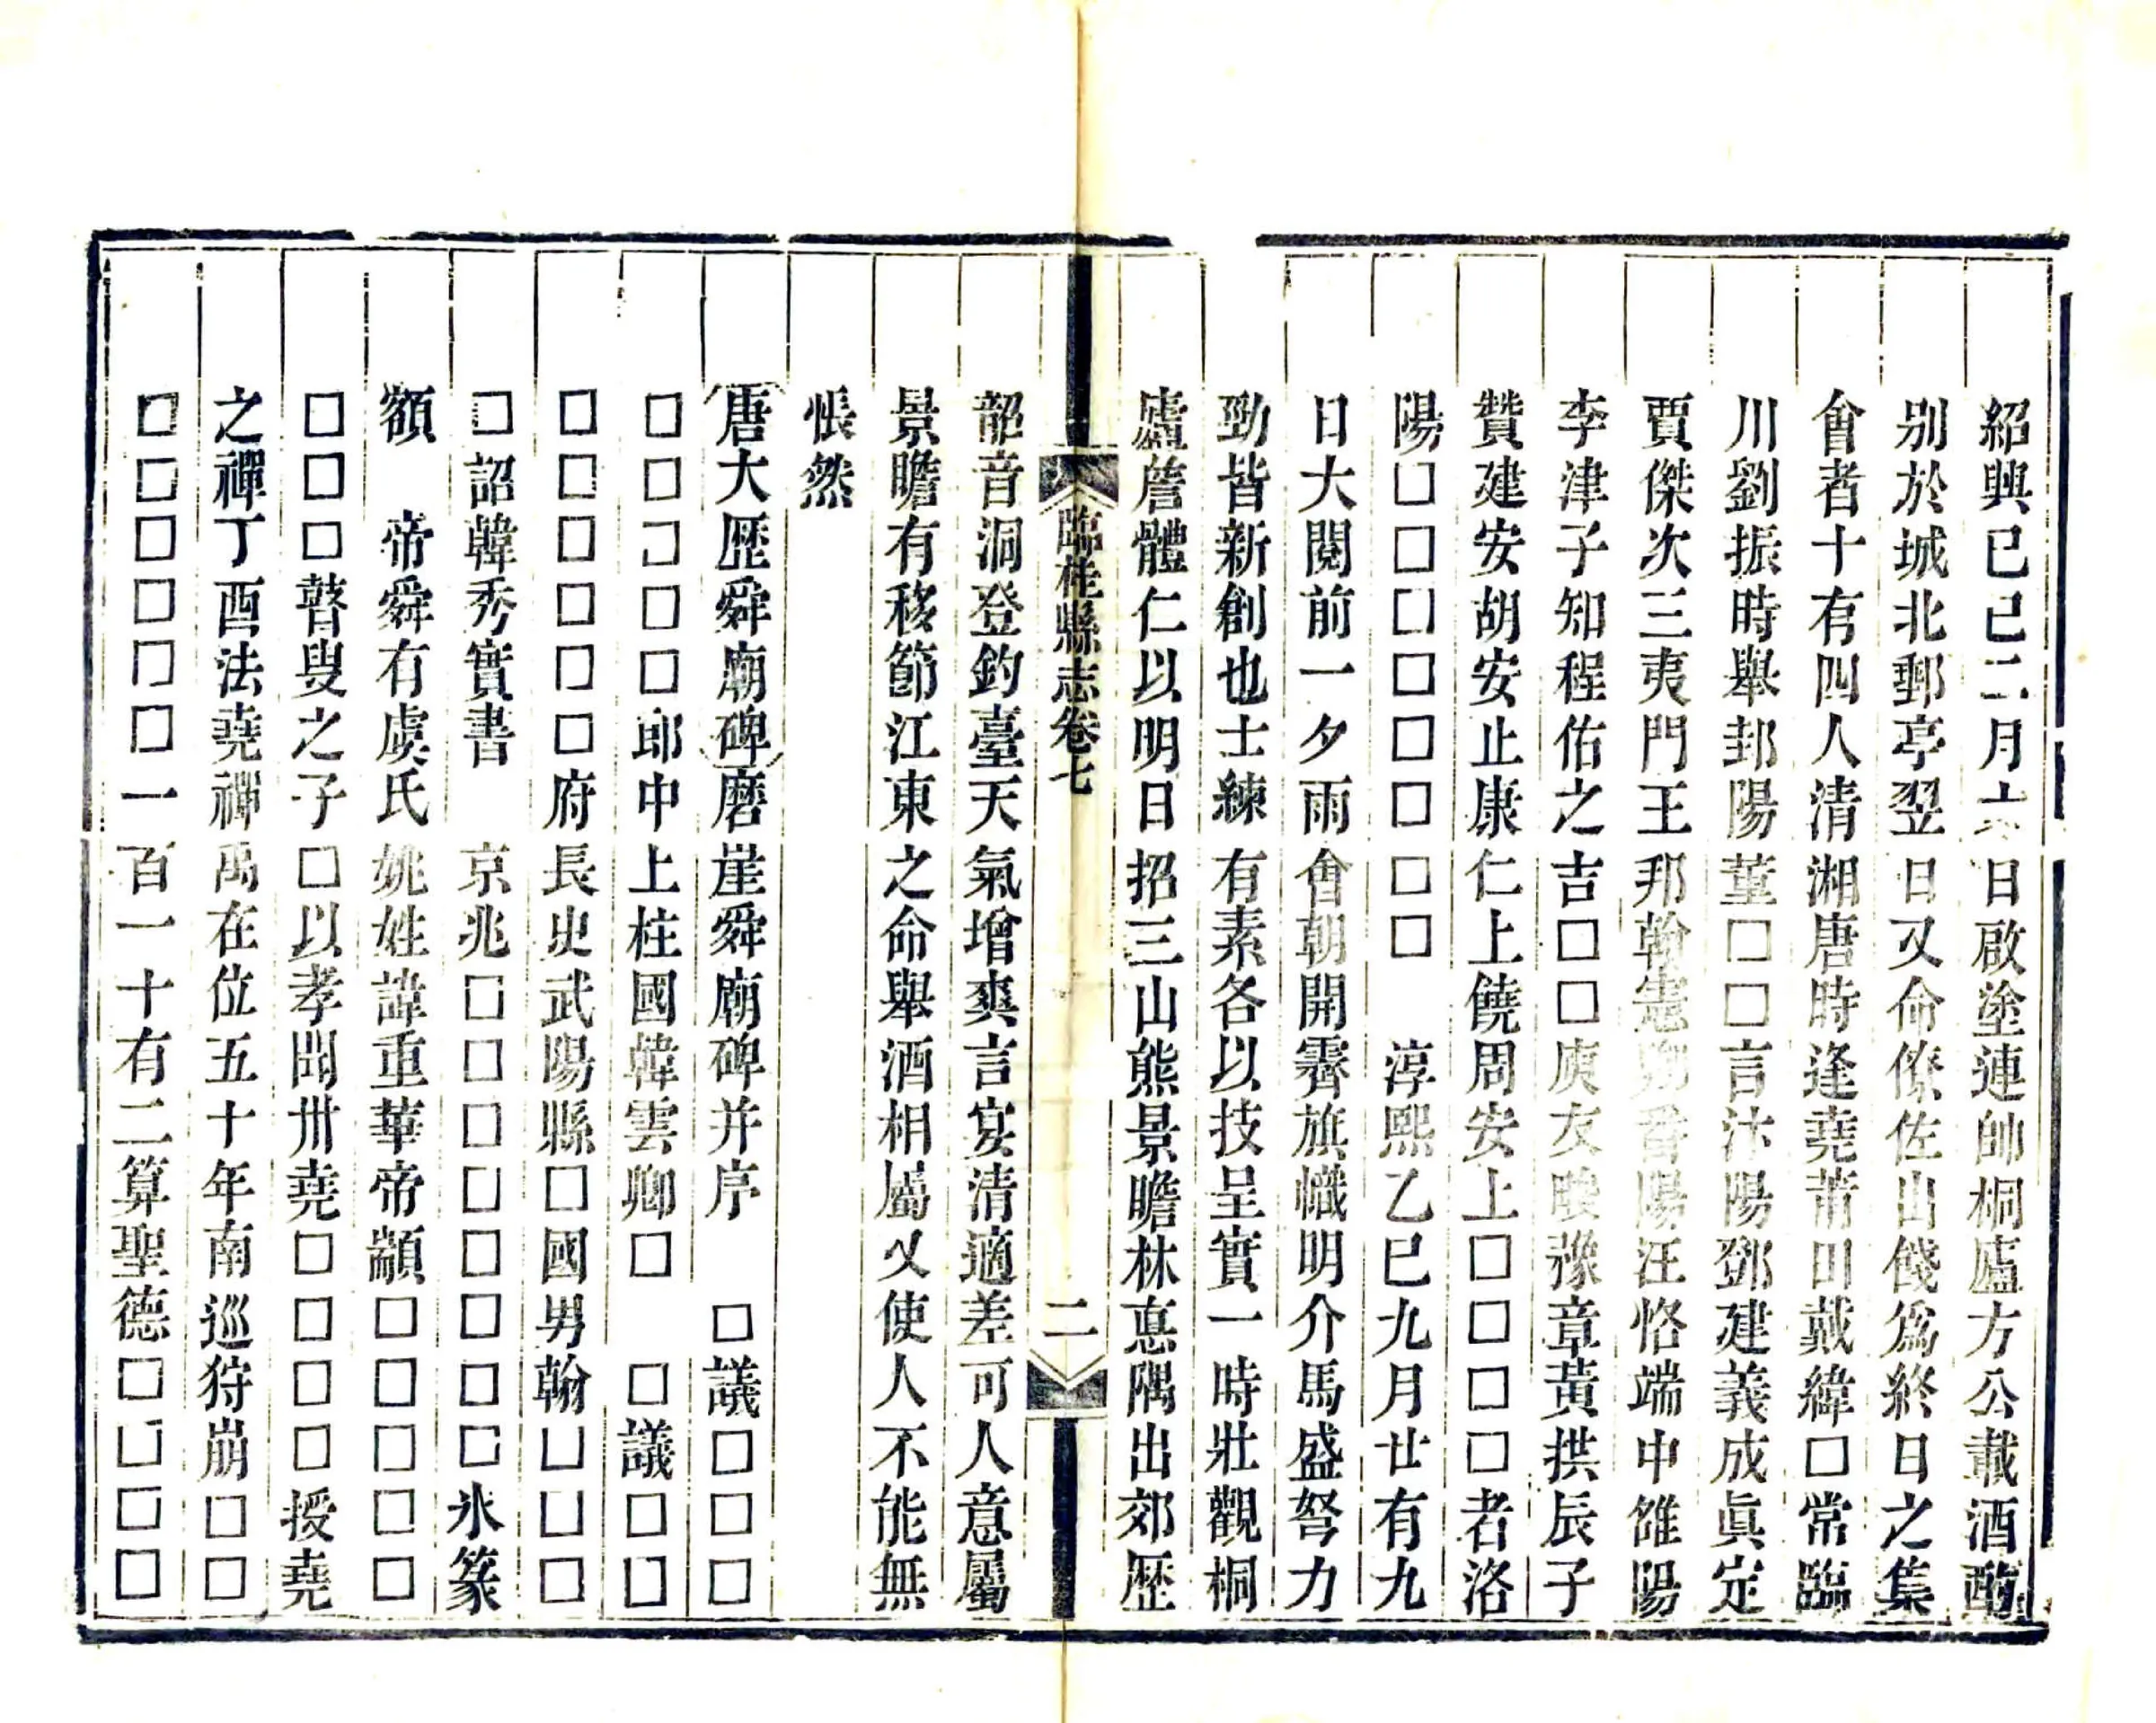 紹興已巳二月六日啟塗連帥桐廬方公載酒酌
別於城北郵亭翌日又命僚佐出餞爲終日之集
會者十有四人清湘唐時逢堯莆田戴緯□常臨
川劉振時舉邽陽董□□言沈陽鄧建義成眞定
賈傑次三夷門王邦翰憲卿番陽汪恪端中雒陽
李津子知程佑之吉□□庾友聞豫章黃拱辰子
贊建安胡安止康仁上饒周安上□□□□者洛
陽□□□□□□□□　淳熙乙巳九月廿有九
日大閱前一夕雨會朝開霽旗幟明介馬盛弩力
勁皆新創也士練有素各以技呈實一時壯觀桐
廬詹體仁以明日招三山熊景瞻林悳隅出郊歷
臨桂縣志卷七　二
韶音洞登釣臺天氣增爽言宴清適差可人意屬
景瞻有移節江東之命舉酒相屬又使人不能無
悵然
唐大歷舜廟碑磨崖舜廟碑并序　□議□□□
□□□□□郎中上柱國韓雲卿□　□議□□
□□□□□□府長史武陽縣□國男翰□□□
□詔韓秀實書　京兆□□□□□□□□氷篆
額　帝舜有虞氏姚姓諱重華帝顓□□□□□
□□□瞽叟之子□以孝聞卅堯□□□□授堯
之禪丁酉法堯禪禹在位五十年南巡狩崩□□
□□□□□□一百一十有二算聖德□□□□